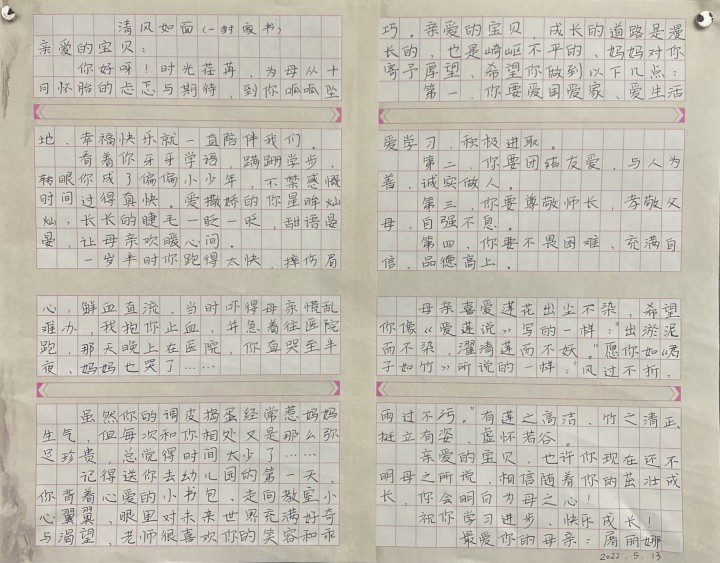 清风如面（一封家书）
亲爱的宝贝：
你好呀！时光荏苒，为母从十
月怀胎的忐忑与期待，到你呱呱坠
地，幸福快乐就一直陪伴我们。
看着你牙牙学语，蹒跚学步，
转眼你成了偏偏小少年，不禁感慨
时间过得真快。爱撒娇的你星眸灿
灿，长长的睫毛一眨一眨，甜语晏
晏，让母亲欢暖心间。
一岁半时你跑得太快，摔伤眉
心，鲜血直流，当时吓得母亲慌乱
难办，我抱你止血，并急着往医院
跑，那天晚上在医院，你血哭至半
夜，妈妈也哭了……
虽然你的调皮捣蛋经常惹妈妈
生气，但每次和你相处又是那么弥
足珍贵，总觉得时间太少了……
记得送你去幼儿园的第一天，
你背着心爱的小书包，走向教室小
心翼翼，眼里对未来世界充满好奇
与渴望，老师很喜欢你的笑容和乖
巧。亲爱的宝贝，成长的道路是漫
长的，也是崎岖不平的，妈妈对你
寄予厚望，希望你做到以下几点：
第一，你要爱国爱家、爱生活
爱学习，积极进取。
第二，你要团结友爱，与人为
善，诚实做人。
第三，你要尊敬师长，孝敬父
母，自强不息。
第四，你要不畏困难，充满自
信，品德高上。
母亲喜爱莲花出尘不染，希望
你像《爱莲说》写的一样：“出淤泥
而不染，濯清莲而不妖。”愿你如《君
子如竹》所说的一样：“风过不折，
雨过不污。”有莲之高洁，竹之清正，
挺立有姿，虚怀若谷。
亲爱的宝贝，也许你现在还不
明母之所说，相信随着你的茁壮成
长，你会明白为母之心！
祝你学习进步，快乐成长！
最爱你的母亲：屠丽娜
2022.5.13